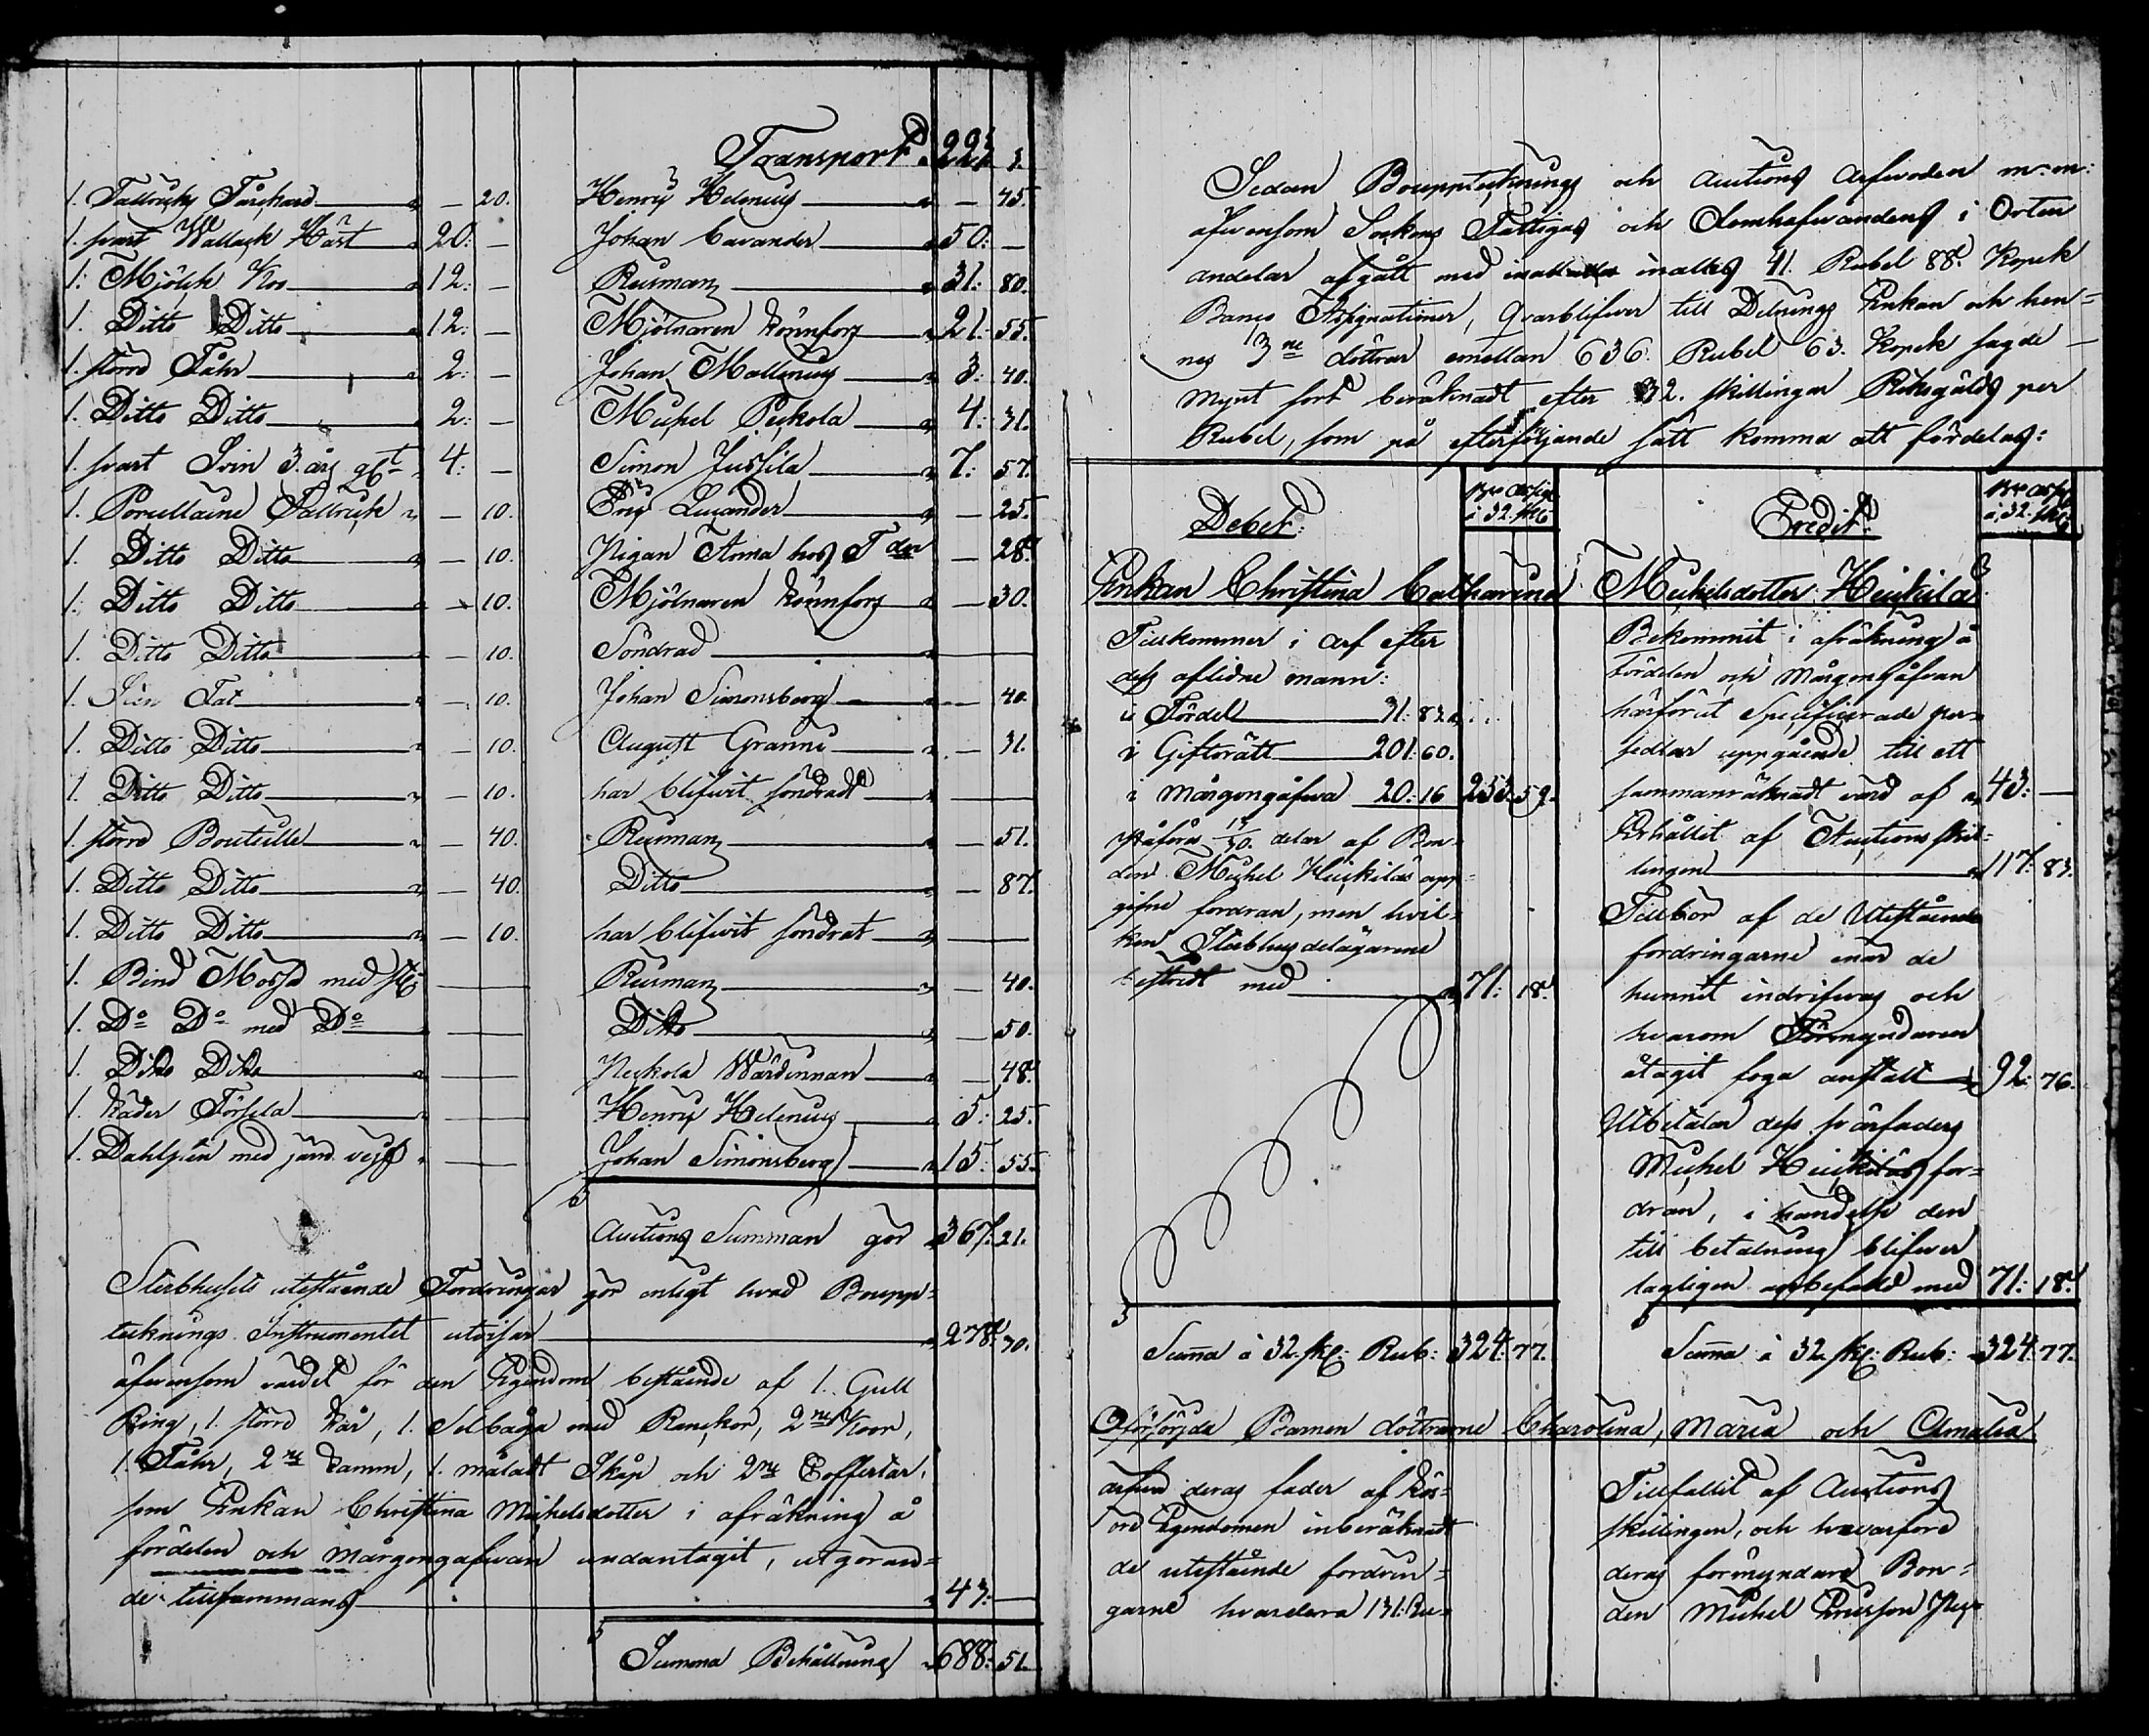 Transport 224 1.
1. Tallricks Tårckard 20. Henric Helenius 45.
1. svart Wallack Häst 20: — Johan Cavander 50: —
1. Mjölck Koo 12: — Rusman 31: 80.
1. Ditto Ditto 12: — Mjölnaren Könnfors 21: 55.
1. större Fåhr 2: — Johan Mallenius 3: 40.
1. Ditto Ditto 2: — Michel Peckola 4: 31.
1. svart Svin 3. års 4: — Simon Jussila 7: 57.
1. Porcellaine Tallrick — 10. Eric Lucander — 25.
1. Ditto Ditto — 10. Pigan Anna hos — 28.
1. Ditto Ditto — 10. Mjölnaren Könnfors — 30.
1. Ditto Ditto — 10. Söndrad —
1. Sten Fat — 10. Johan Simonsberg — 40.
1. Ditto Ditto — 10. August Granni — 31.
1. Ditto Ditto — 10. har blifwit söndradt —
1. större Bouteille — 40. Rusman — 51.
1. Ditto Ditto — 40. Ditto — 87.
1. Ditto Ditto — 10. har blifwit söndrat —
1. Bind Mossa med — Rusman — 40.
1. Do Do med Do — Ditto — 50.
1. Ditto Ditto — Wärdinnan — 48.
1. Läder Försela — Henric Helenius 5: 25.
1. med järn — Johan Simonsberg 15: 55.
Auctions Summan gör 367: 21.
Sterbhusets utestående Fordringar gör enligt hvad Boupp=
tecknings Instrumentet utvisar 278: 30.
äfvensom värdet för den Egendom bestående af 1. Gull
Ring, 1. större Kar, 1. Selbåga med Ranckor, 2ne Koor,
1. Fåhr, 2ne Lamm, 1. måladt Skåp och 2ne Coffertar,
som Enkan Christina Michelsdotter i afräkning å
fördelen och mårgongåfwan undantagit, utgöran=
de tillsammans 43: —
Summa Behållning 688: 51.
Sedan Bouppteknings och Auctions Arfwoden m: m:
äfwensom Sockens Fattigas och Domhafwandens i Orten
andelar afgått med inalles 41. Rubel 88. Kopek
Banco Assignationer, qvarblifwer till Delnings Enkan och hen=
nes 3ne döttrar emellan 636. Rubel 63. Kopek sagde
mynt sort beräknadt efter 32. skillingar Riksgälds per
Rubel, som på efterföljande sätt komma att fördelas:
Debet: Bco Assign à 32. sk: Credit: Bco Assign à 32. sk:
Enkan Christina Catharina Michelsdotter Heickilä
Tillkommer i Arf efter
dess aflidne mann:
i Fördel 31: 83.
i Giftorätt 201: 60.
i mårgongåfwa 20: 16 253: 59.
Påföres delar af Bon=
den Michel Heickiläs upp=
gifne fordran, men hvil=
ken Sterbhusdelägarene
bestridt med 71: 18.
Summa à 32. sk: Rub: 324: 77.
Bekommit i afräkning å
fördelen och Mårgongåfvan
härförut Specificerade per=
sedlar uppgående till ett
sammanräknadt värd af 43: —
Erhållit af Auctions skil=
lingen 117: 83.
Tillbör af de Utestående
fordringarne enär de
hunnit indrifwas och
hvarom Förmyndaren
åtagit foga anstalt 92: 76.
Utbetalar dess svärfaders
Michel Heickiläs for=
dran, i händelse den
till betalning blifwer
lagligen anbefalld med 71: 18.
Summa à 32. sk: Rub: 324: 77.
Oförsörjda Barnen döttrarne Charolina, Maria och Amalia
ärfva deras fader af Lös=
öre Egendomen inberäknadt
de utestående fordrin=
garne hvardera 131: Ru=
Tillfallit af Auctions
skillingen, och hvarföre
deras förmyndare Bon=
den Michel Ericsson